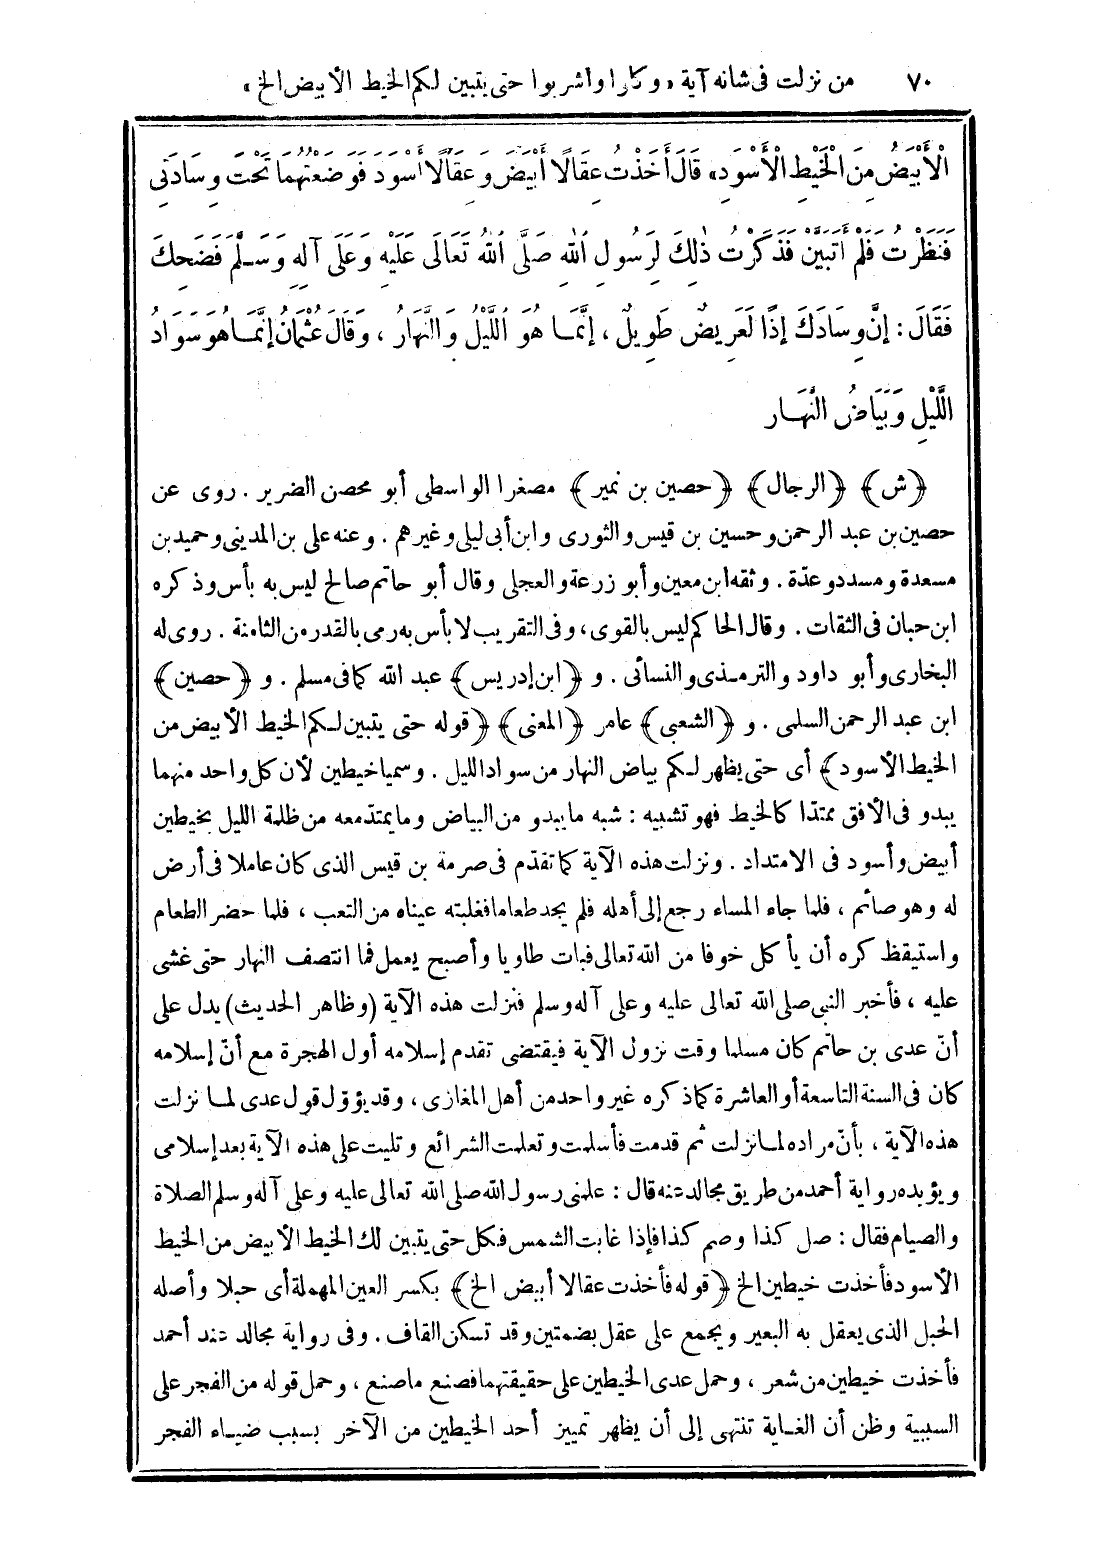 ٧٠ من نزلت فى شانه آية «وكلوا واشربوا حتى يتبين لكم الخيط الأبيض الخ»
الْأَبْيَضُ مِنَ الْخَيْطِ الْأَسْوَدِ» قَالَ أَخَذْتُ عِقَالًا أَبْيَضَ وَعِقَالًا أَسْوَدَ فَوَضَعْتُهُمَا تَحْتَ وِسَادَتِى
فَنَظَرْتُ فَلَمْ أَتَبَيَّنْ فَذَكَرْتُ ذٰلِكَ لِرَسُولِ اللهِ صَلَّى اللهُ تَعَالَى عَلَيْهِ وَعَلَى آلِهِ وَسَلَّمَ فَضَحِكَ
فَقَالَ : إِنَّ وِسَادَكَ إِذًا لَعَرِيضٌ طَوِيلٌ ، إِنَّمَا هُوَ اللَّيْلُ وَالنَّهَارُ ، وَقَالَ عُثْمَانُ إِنَّمَا هُوَ سَوَادُ
اللَّيْلِ وَبَيَاضُ النَّهَارِ
﴿ش﴾ ﴿الرجال﴾ ﴿حصين بن نمير﴾ مصغرا الواسطى أبو محصن الضرير . روى عن
حصين بن عبد الرحمن وحسين بن قيس والثورى وابن أبى ليلى وغيرهم . وعنه على بن المدينى وحميد بن
مسعدة ومسدد وعدّة . وثقه ابن معين وأبو زرعة والعجلى وقال أبو حاتم صالح ليس به بأس وذكره
ابن حبان فى الثقات . وقال الحاكم ليس بالقوى ، وفى التقريب لا بأس به رمى بالقدر من الثامنة . روى له
البخارى وأبو داود والترمذى والنسائى . و ﴿ابن إدريس﴾ عبد الله كما فى مسلم . و ﴿حصين﴾
ابن عبد الرحمن السلمى . و ﴿الشعبى﴾ عامر ﴿المعنى﴾ ﴿قوله حتى يتبين لكم الخيط الأبيض من
الخيط الأسود﴾ أى حتى يظهر لكم بياض النهار من سواد الليل . وسميا خيطين لأن كل واحد منهما
يبدو فى الأفق ممتدّا كالخيط فهو تشبيه : شبه ما يبدو من البياض وما يمتدّ معه من ظلمة الليل بخيطين
أبيض وأسود فى الامتداد . ونزلت هذه الآية كما تقدّم فى صرمة بن قيس الذى كان عاملا فى أرض
له وهو صائم ، فلما جاء المساء رجع إلى أهله فلم يجد طعاما فغلبته عيناه من التعب ، فلما حضر الطعام
واستيقظ كره أن يأكل خوفا من الله تعالى فبات طاويا وأصبح يعمل فما انتصف النهار حتى غشى
عليه ، فأخبر النبى صلى الله تعالى عليه وعلى آله وسلم فنزلت هذه الآية (وظاهر الحديث) يدل على
أنّ عدى بن حاتم كان مسلما وقت نزول الآية فيقتضى تقدم إسلامه أول الهجرة مع أنّ إسلامه
كان فى السنة التاسعة أو العاشرة كما ذكره غير واحد من أهل المغازى ، وقد يؤوّل قول عدى لما نزلت
هذه الآية ، بأنّ مراده لما نزلت ثم قدمت فأسلمت وتعلمت الشرائع وتليت على هذه الآية بعد إسلامى
ويؤيده رواية أحمد من طريق مجالد عنه قال : علمنى رسول الله صلى الله تعالى عليه وعلى آله وسلم الصلاة
والصيام فقال : صل كذا وصم كذا فإذا غابت الشمس فكل حتى يتبين لك الخيط الأبيض من الخيط
الأسود فأخذت خيطين الخ ﴿قوله فأخذت عقالا أبيض الخ﴾ بكسر العين المهملة أى حبلا وأصله
الحبل الذى يعقل به البعير ويجمع على عقل بضمتين وقد تسكن القاف . وفى رواية مجالد عند أحمد
فأخذت خيطين من شعر ، وحمل عدى الخيطين على حقيقتهما فصنع ما صنع ، وحمل قوله من الفجر على
السببية وظن أن الغاية تنتهى إلى أن يظهر تمييز أحد الخيطين من الآخر بسبب ضياء الفجر